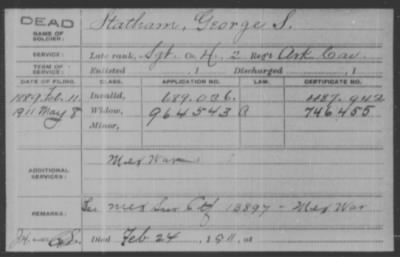 DEAD
NAME OF SOLDIER: Statham, George S.
SERVICE: Late rank, Sgt. Co. H, 2 Reg't Ark Cav
TERM OF SERVICE: Enlisted , 1 Discharged , 1
DATE OF FILING. CLASS. APPLICATION NO. LAW. CERTIFICATE NO.
1889 Feb. 11 Invalid, 689.036. 487.942
1911 May 8 Widow, 964543 B 746455
Minor,
ADDITIONAL SERVICES: Mex War
REMARKS: See Mex Sur Ctf 13897 - Mex War
Died Feb 24, 1911, at